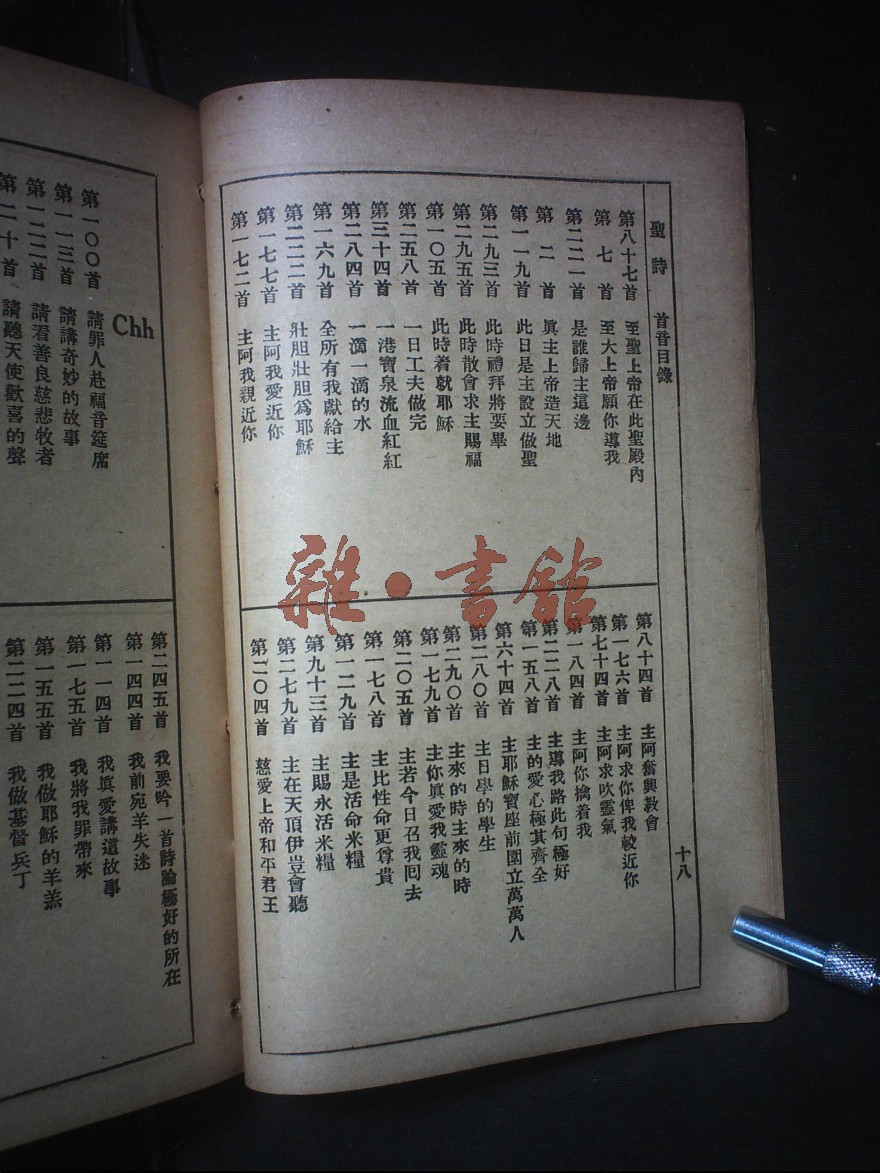 聖詩 首音目錄
第八十七首 至聖上帝在此聖殿內
第七首 至大上帝願你導我
第二二一首 是誰歸主這邊
第二首 眞主上帝造天地
第一一九首 此日是主設立做聖
第二九三首 此時禮拜將要畢
第二九五首 此時散會求主賜福
第一〇五首 此時着就耶穌
第二五八首 一日工夫做完
第三十四首 一港寶泉流血紅紅
第二八四首 一滴一滴的水
第一六九首 全所有我獻給主
第二二二首 壯胆壯胆爲耶穌
第一七七首 主阿我愛近你
第一七二首 主阿我親近你
第八十四首 主阿奮興敎會
第一七六首 主阿求你俾我較近你
第七十四首 主阿求吹靈氣
第一八四首 主阿你擒着我
第二二八首 主導我路此句極好
第一五八首 主的愛心極其齊全
第六十四首 主耶穌寶座前圍立萬萬人
第二八〇首 主日學的學生
第二九〇首 主來的時主來的時
第一七九首 主你眞愛我靈魂
第二〇五首 主若今日召我回去
第一七八首 主比性命更尊貴
第一二九首 主是活命米糧
第九十三首 主賜永活米糧
第二七九首 主在天頂伊豈會聽
第二〇四首 慈愛上帝和平君王
十八
Chh
第一〇〇首 請罪人赴福音筵席
第一一三首 請講奇妙的故事
第一二二首 請看善良慈悲牧者
第二十首 請聽天使歡喜的聲
第二四五首 我要吟一首詩論極好的所在
第一四四首 我前宛羊失迷
第一一四首 我眞愛講這故事
第一七五首 我將我罪帶來
第一五五首 我做耶穌的羊羔
第二二四首 我做基督兵丁
雜·書館